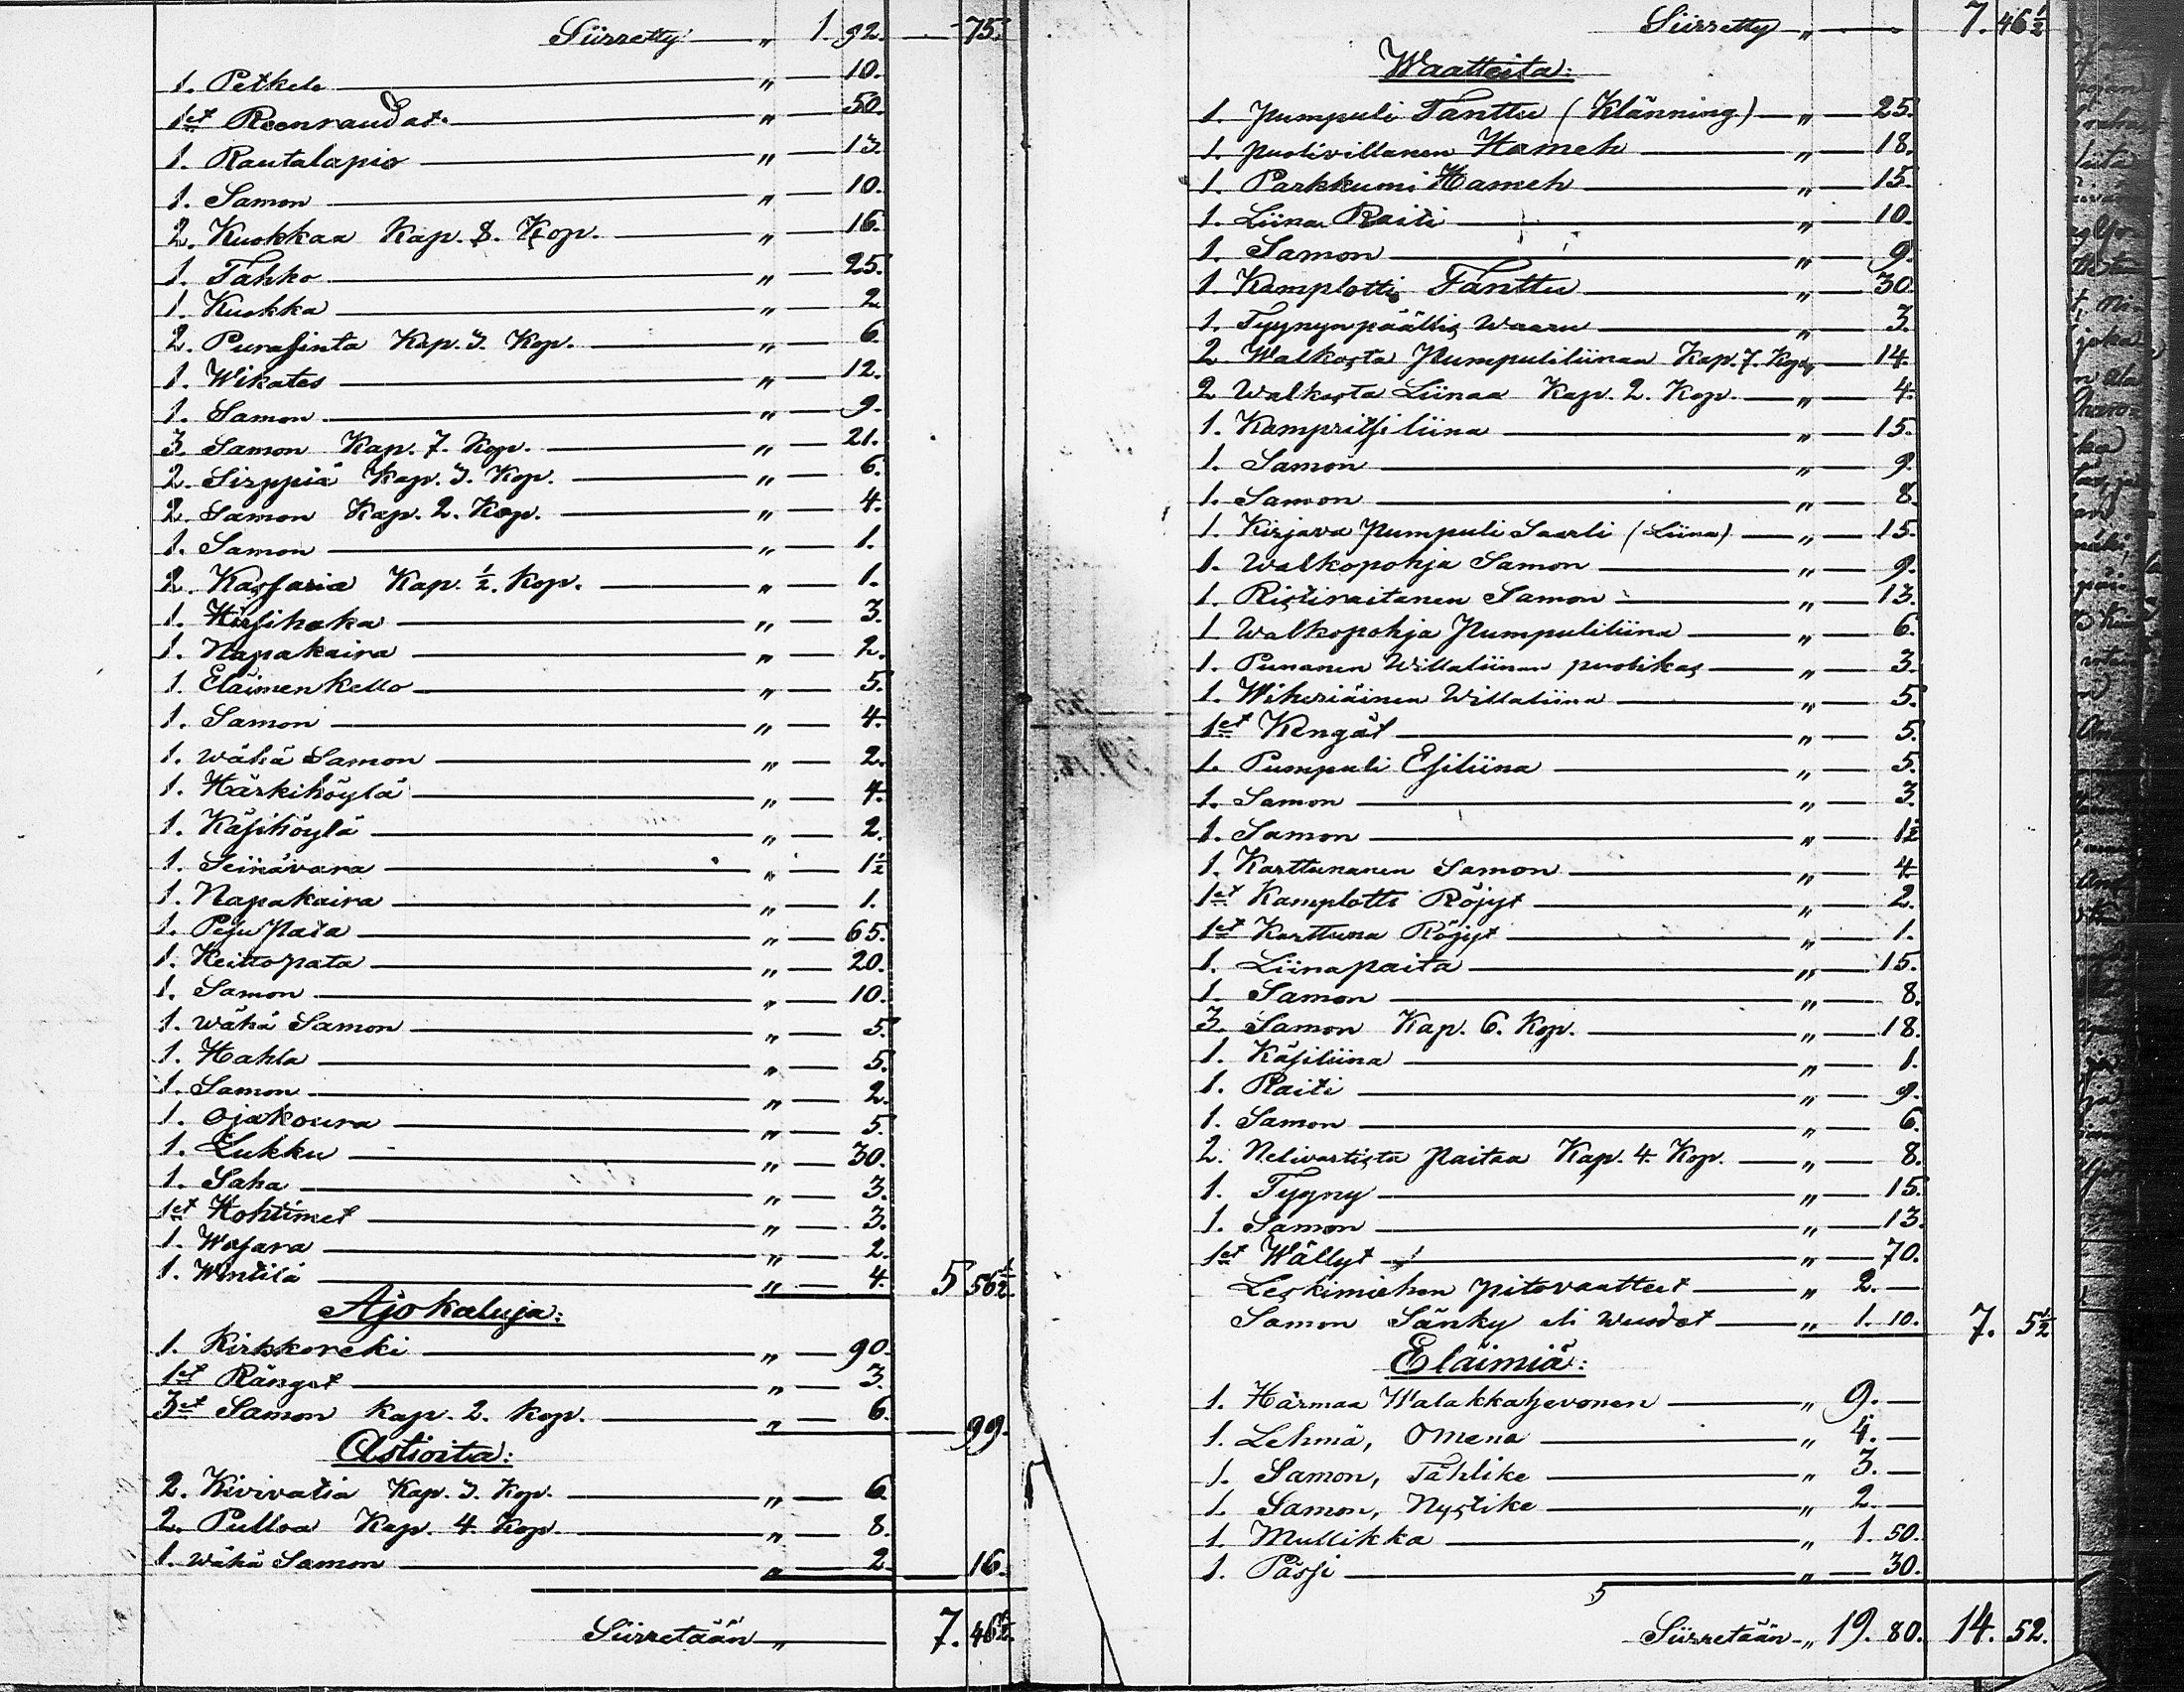 Siirretty " 1. 92. — 75.
1. Petkele " — 10.
1et Reenraudat " — 50.
1. Rautalapio " — 13.
1. Samon " — 10.
2. Kuokkaa Kap. 8. Kop. " — 16.
1. Tahko " — 25.
1. Kuokka " — 2
2. Purasinta Kap. 3. Kop. " — 6.
1. Wikates " — 12.
1. Samon " — 9.
3. Samon Kap. 7. Kop. " — 21.
2. Sirppiä Kap. 3. Kop. " — 6.
2. Samon Kap. 2. Kop. " — 4.
1. Samon " — 1.
2. Kassaria Kap. ½. Kop. " — 1.
1. Kirsihaka " — 3.
1. Napakaira " — 2.
1. Eläimenkello " — 5.
1. Samon " — 4.
1. Wähä Samon " — 2.
1. Härkihöylä " — 4.
1. Käsihöylä " — 2.
1. Seinävara " — 1½
1. Napakaira " — 1.
1. Pesu Pata " — 65.
1. Keittopata " — 20.
1. Samon " — 10.
1. Wähä Samon " — 5.
1. Hahla " — 5.
1. Samon " — 2.
1. Ojakoura " — 5.
1. Lukku " — 30.
1. Saha " — 3.
1et Hohtimet " — 3.
1. Wasara " — 2.
1. Wintilä " — 4. 5 56½.
Ajokaluja:
1. Kirkkoreki " — 90.
1et Länget " — 3.
3et Samon Kap. 2. Kop. " — 6. — 99.
Astioita:
2. Kivivatia Kap. 3. Kop. " — 6.
2. Pulloa Kap. 4. Kop. " — 8.
1. Wähä Samon " — 2. — 16.
Siirretään " 7. 46½.
Siirretty " 7. 46½
Waatteita:
1. Pumpuli Tanttu (Klänning) " — 25.
1. puolivillanen Hameh " — 18.
1. Parkkumi Hameh " — 15.
1. Liina Raiti " — 10.
1. Samon " — 9.
1. Kamplotti Tanttu " — 30.
1. Tyynynpäällis Waaru " — 3.
2 Walkosta Pumpuliliinaa Kap. 7. Kop. " — 14.
2 Walkosta Liinaa Kap. 2. Kop. " — 4.
1. Kampritsi liina " — 15.
1. Samon " — 9.
1. Samon " — 8.
1. Kirjava Pumpuli Saarli (Liina) " — 15.
1. Walkopohja Samon " — 9.
1. Ristiraitanen Samon " — 13.
1 Walkopohja Pumpuliliina " — 6.
1. Punanen Willaliinan puolikas " — 3.
1. Wiheriäinen Willaliina " — 5.
1et Kengät " — 5.
1. Pumpuli Esiliina " — 5.
1. Samon " — 3.
1. Samon " — 1½
1. Karttunanen Samon " — 4.
1et Kamplotti Röjyt " — 2.
1et Karttuna Röjyt " — 1.
1. Liinapaita " — 15.
1. Samon " — 8.
3. Samon Kap. 6. Kop. " — 18.
1. Käsiliina " — 1.
1. Raiti " — 9.
1. Samon " — 6.
2. Nelivartista Paitaa Kap. 4. Kop. " — 8.
1. Tyyny " — 15.
1. Samon " — 13.
1et Wällyt " — 70.
Leskimiehen pitovaatteet " 2. —
Samon Sänky eli Wuodet " 1. 10. 7. 5½
Eläimiä:
1. Harmaa Walakkahevonen " 9. —
1. Lehmä, Omena " 4. —
1. Samon, Tählike " 3. —
1. Samon, Nystike " 2. —
1. Mullikka " 1. 50.
1. Pässi " — 30.
Siirretään " 19. 80. 14. 52.